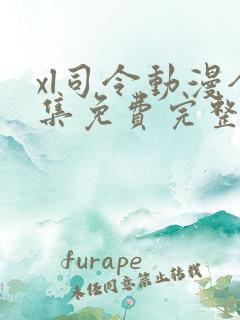 xl司令動漫全
集免費完整
furape
未經同意禁止轉載